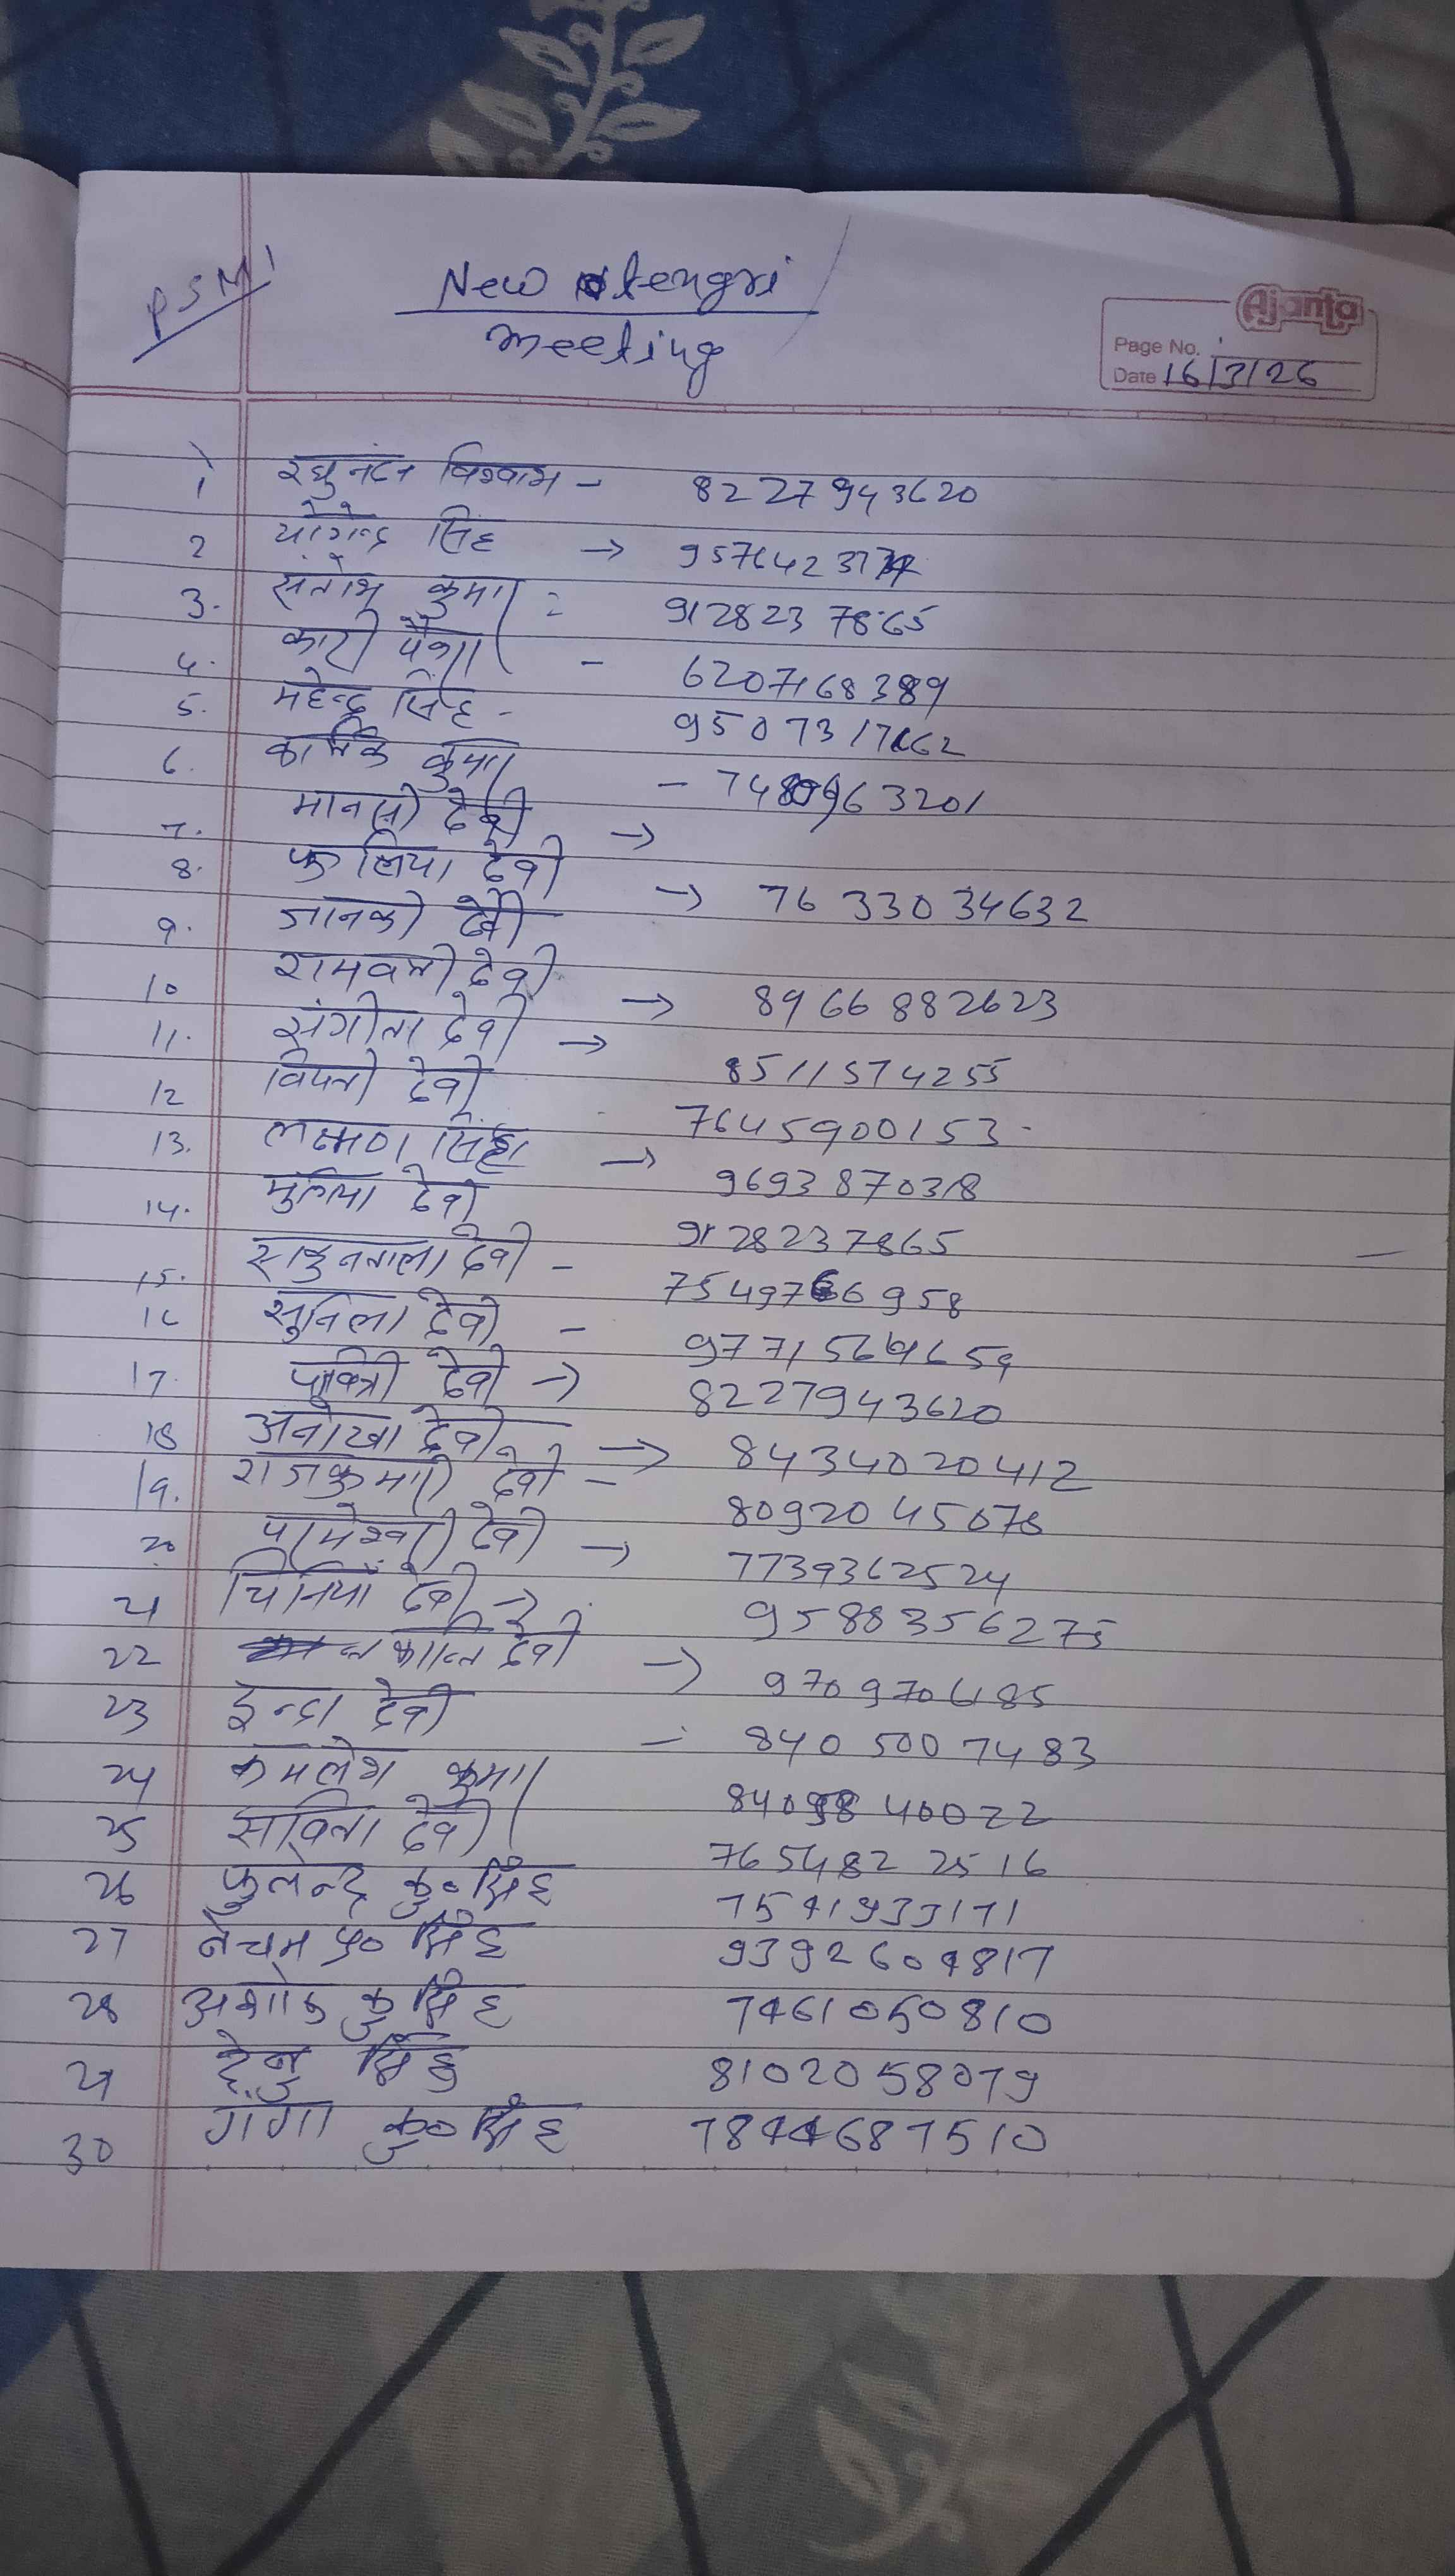 PSM1
New tengri
meeting
Ajanta
Page No.
Date 16/3/26
1 रघुनंदन विश्वास - 8227943620
2 योगेन्द्र सिंह → 957642317
3. संतोष कुमार = 9128237865
4. कारी - 6207168389
5. महेन्द्र सिंह - 9507317662
6. कार्तिक कुमार - 963201
7. मानसी देवी →
8. फुलिया देवी → 7633034632
9. जानकी देवी
10 रामवती देवी → 8966882623
11. संगीता देवी → 8511574255
12 विपती देवी - 7645900153
13. लक्ष्मण सिंह → 9693870318
14. देवी 9128237865
15. सकुनतला देवी - 7549766958
16 सुनिला देवी -
17. देवी → 8227943620
18 अनोखा देवी → 8434020412
19. राजकुमारी देवी - 8092045078
20 परमेश्वरी देवी → 7739362524
21 चिनियाँ देवी → 9588356275
22 कान्ति देवी → 9709706185
23 इन्द्रा देवी - 8405007483
24 कमलेश कुमार 8409840022
25 सविता देवी 7654822516
26 फुलेन्द्र कु० सिंह 7541933171
27 नेचम प्र० सिंह 9392604817
28 अशोक कु सिंह 7461050810
29 सिंह 8102058079
30 गंगा कु० सिंह 7844687510